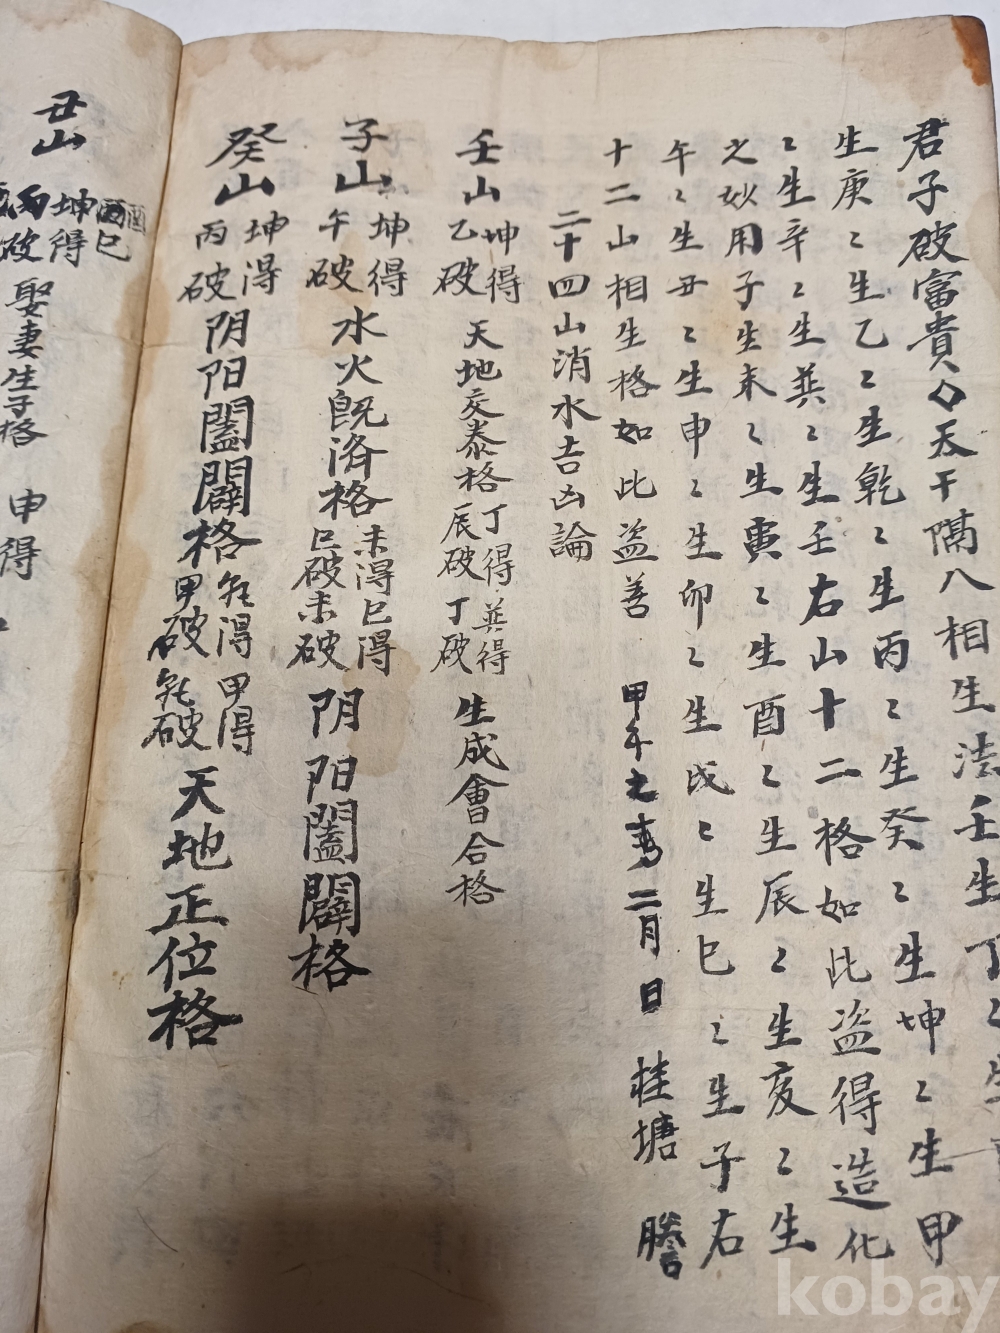 君子破富貴◇天干隔八相生法壬生丁〻生
生庚〻生乙〻生乾〻生丙〻生癸〻生坤〻生甲
〻生辛〻生巽〻生壬右山十二格如此盜得造化
之妙用子生未〻生寅〻生酉〻生辰〻生亥〻生
午〻生丑〻生申〻生卯〻生戌〻生巳〻生子右
十二山相生格如此盜善 甲午之春二月日 桂塘 謄
二十四山消水吉凶論
壬山 坤得 乙破 天地交泰格 丁得 辰破 巽得 丁破 生成會合格
子山 坤得 午破 水火旣济格 未得 巳破 巳得 未破 阴阳闔闢格
癸山 坤得 丙破 阴阳闔闢格 得 甲破 甲得 破 天地正位格
丑山 坤得 丙破 酉 巳 娶妻生子格 申得
kobay